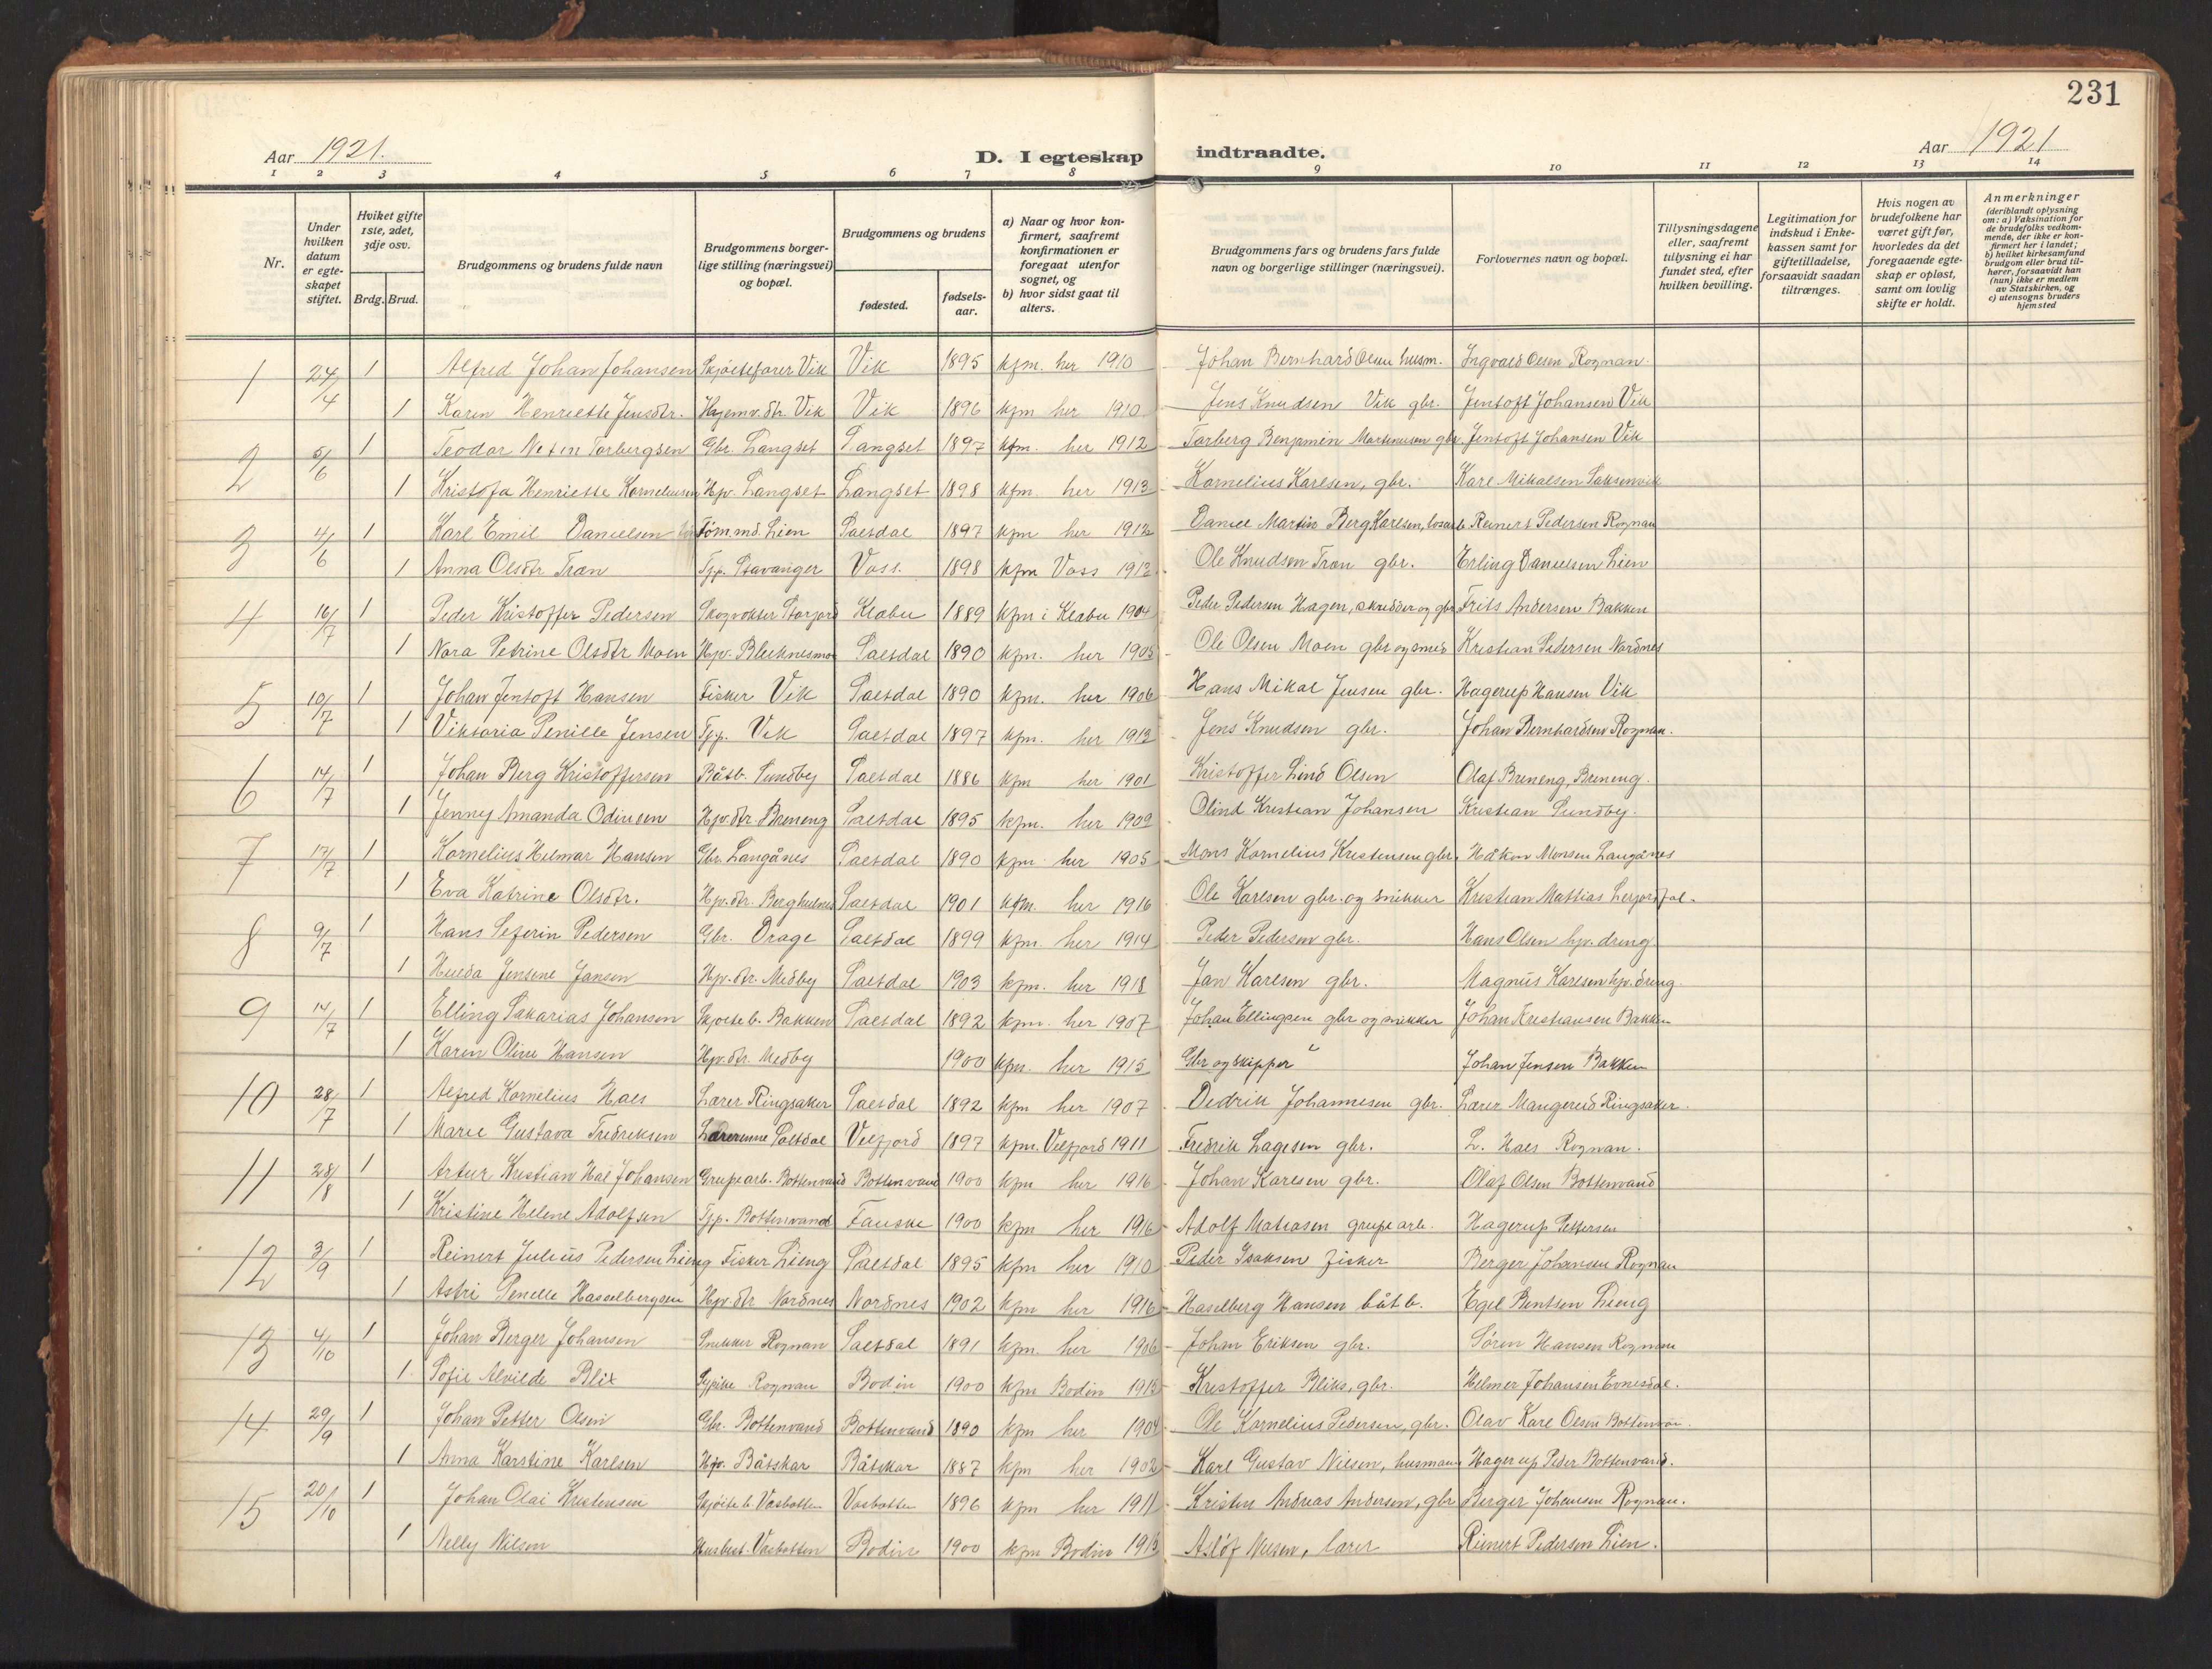 231
Aar 1921.
D. I egteskap indtraadte.
Aar 1921
1 2 3 4 5 6 7 8 9 10 11 12 13 14
Nr.
Under hvilken datum er egteskapet stiftet.
Hviket gifte 1ste, 2det, 3dje osv.
Brdg. Brud.
Brudgommens og brudens fulde navn
Brudgommens borgerlige stilling (næringsvei) og bopæl.
Brudgommens og brudens
fødested.
fødselsaar.
a) Naar og hvor konfirmert, saafremt konfirmationen er foregaat utenfor sognet, og
b) hvor sidst gaat til alters.
Brudgommens fars og brudens fars fulde navn og borgerlige stillinger (næringsvei).
Forlovernes navn og bopæl.
Tillysningsdagene eller, saafremt tillysning ei har fundet sted, efter hvilken bevilling.
Legitimation for indskud i Enkekassen samt for giftetilladelse, forsaavidt saadan tiltrænges.
Hvis nogen av brudefolkene har været gift før, hvorledes da det foregaaende egteskap er opløst, samt om lovlig skifte er holdt.
Anmerkninger (deriblandt oplysning om: a) Vaksination for de brudefolks vedkommende, der ikke er konfirmert her i landet; b) hvilket kirkesamfund brudgom eller brud tilhører, forsaavidt han (hun) ikke er medlem av Statskirken, og c) utensogns bruders hjemsted
1 24/4 1 Alfred Johan Johansen Skjøitefører Vik Vik 1895 kfm. her 1910 Johan Bernhard Olsen husm. Ingvald Olsen Rognan.
1 Karen Henriette Jensdtr. Hjemv. dtr. Vik Vik 1896 kfm her 1910 Jens Knudsen Vik gbr. Jentoft Johansen Vik
2 5/6 1 Teodor Torbergsen Gbr. Langset Langset 1897 kfm. her 1912 Torberg Benjamin Martinusen gbr. Jentoft Johansen Vik
1 Kristofa Henriette Korneliusen Hjv. Langset Langset 1898 kfm. her 1913 Kornelius Karlsen, gbr. Karl Mikalsen Saksenvik
3 4/6 1 Karl Emil Danielsen Tøm.md. Lien Saltdal 1897 kfm her 1912 Daniel Martin Berg Karlsen, Reinert Pedersen Rognan
1 Anna Olsdtr Træn Tjp. Stavanger Voss. 1898 kfm Voss 1912 Ole Knudsen Træn gbr. Erling Danielsen Lien
4 16/7 1 Peder Kristoffer Pedersen Skogvokter Storjord Klæbu 1889 kfm i Klæbu 1904 Peder Pedersen Hagen, skrædder og gbr Frits Andersen Bakken
1 Nora Petrine Olsdtr Moen Hjv. Bleknesmo Saltdal 1890 kfm. her 1905 Ole Olsen Moen gbr og smed Kristian Pedersen Nordnes
5 10/7 1 Johan Jentoft Hansen Fisker Vik Saltdal 1890 kfm. her 1906 Hans Mikal Jensen gbr. Hagerup Hansen Vik
1 Viktoria Penille Jensen Tjp. Vik Saltdal 1897 kfm. her 1912 Jens Knudsen gbr. Johan Bernhardsen Rognan.
6 14/7 1 Johan Berg Kristoffersen Båtb. Sundby Saltdal 1886 kfm her 1901 Kristoffer Lind Olsen Olaf Breneng, Breneng.
1 Jenny Amanda Odinsen Hjv. dtr. Breneng Saltdal 1895 kfm. her 1909 Olind Kristian Johansen Kristian Sundby.
7 17/7 1 Kornelius Helmar Hansen Gbr. Langånes Saltdal 1890 kfm. her 1905 Mons Kornelius Kristensen gbr. Håkon Monsen Langånes
1 Eva Katrine Olsdtr. Hjv. dtr. Berghulnes Saltdal 1901 kfm. her 1916 Ole Karlsen gbr. og snikker Kristian Mattias
8 9/7 1 Hans Seferin Pedersen Gbr. Drage Saltdal 1899 kfm. her 1914 Peder Pedersen gbr. Hans Olsen hjv. dreng
1 Hulda Jensine Jansen Hjv. dtr. Medby Saltdal 1903 kfm. her 1918 Jan Karlsen gbr. Magnus Karlsen hjv. dreng.
9 14/7 1 Elling Sakarias Johansen Skjøiteb. Bakken Saltdal 1892 kfm. her 1907 Johan Ellingsen gbr og snikker Johan Kristiansen Bakken
1 Karen Oline Hansen Hjv. dtr. Medby 1900 kfm. her 1915 Gbr og skipper Johan Jensen Bakken
10 28/7 1 Alfred Kornelius Hals Lærer Ringsaker Saltdal 1892 kfm her 1907 Dedrik Johannesen gbr. Lærer Mangerud Ringsaker.
1 Marie Gustava Fredriksen Lærerinne Saltdal Velfjord 1897 kfm. Velfjord 1911 Fredrik Lagesen gbr. L. Hals Rognan.
11 28/8 1 Artur Kristian Hal Johansen Grubearb. Bottenvand Bottenvand 1900 kfm her 1916 Johan Karlsen gbr. Olaf Olsen Bottenvand
1 Kristine Helene Adolfsen Tjp. Bottenvand Fauske 1900 kfm her 1916 Adolf Matiasen grubearb. Hagerup Pettersen
12 3/9 1 Reinert Julius Pedersen Lieng Fisker Lieng Saltdal 1895 kfm her 1910 Peder Isaksen fisker Berger Johansen Rognan
1 Astri Penelle Hasselbergsen Hjv. dtr Nordnes Nordnes 1902 kfm her 1916 Haselberg Hansen båtb. Egil Bentsen Lieng
13 4/10 1 Johan Berger Johansen Snikker Rognan Saltdal 1891 kfm. her 1906 Johan Eriksen gbr. Søren Hansen Rognan
1 Sofie Alvilde Blix Rognan Bodin 1900 kfm Bodin 1915 Kristoffer Bliks, gbr. Helmer Johansen Evnesdal.
14 29/9 1 Johan Petter Olsen Gbr. Bottenvand Bottenvand 1890 kfm her 1904 Ole Kornelius Pedersen, gbr. Olav Karl Olsen Bottenvan.
1 Anna Karstine Karlsen Hjv. Båtskar Båtskar 1887 kfm her 1902 Karl Gustav Nilsen, husmann Hagerup Peder Bottenvand.
15 20/10 1 Johan Olai Kristensen Skjøiteb. Vasbotten Vasbotten 1896 kfm her 1911 Kristen Andreas Andersen, gbr Berger Johansen Rognan.
1 Nelly Nilsen Husbest. Vasbotten Bodin 1900 kfm Bodin 1915 Nilsen, lærer Reinert Pedersen Lien.